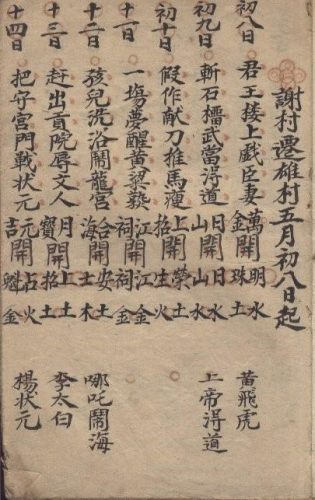 謝村遷雄村五月初八日起
初八日 君王搂上戯臣妻 萬金開明珠水土 黃飛虎
初九日 斬石武當淂道 日山開日山水水 上帝淂道
初十日 假作献刀推馬瘦 上招開榮生土火
十一日 一塲夢醒黄粱 江祠開江祠金金
十二日 孩兒洗浴鬧龍宮 合海開安士土木 哪吒鬧海
十三日 赶出貢院辱文人 月寶開上招土土 李太白
十四日 把守宮門戰状元 元吉開占魁火金 楊状元